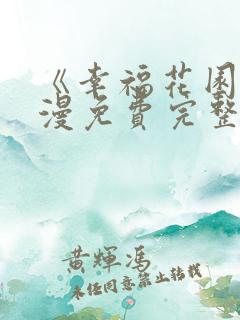 《幸福花园
漫免費完整
黄輝馮
未经同意禁止转载